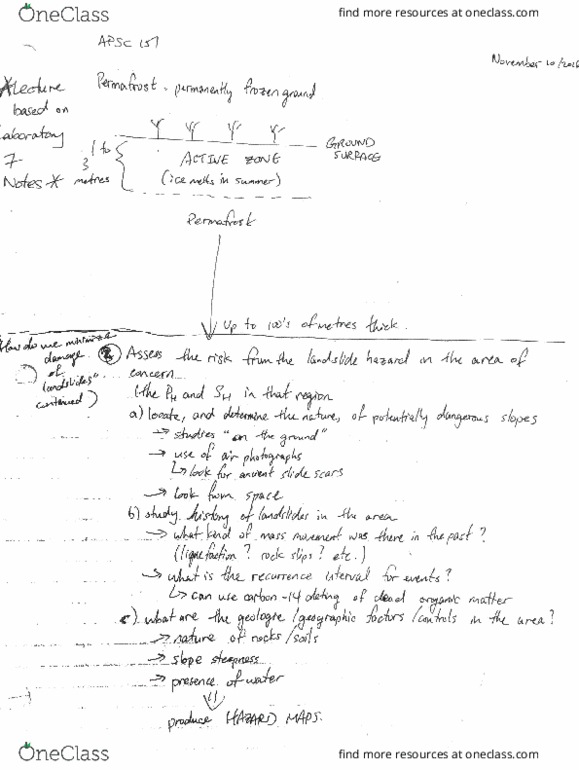 OneClass
find more resources at oneclass.com
APSC 151
November 10/2016
*Lecture
based on
Laboratory
7
Notes *
Permafrost - permanently frozen ground
1 to
3
metres
ACTIVE ZONE
(ice melts in summer)
GROUND
SURFACE
Permafrost
Up to 100's of metres thick.
How do we minimize
damage
of
landslides"
continued)
2) Assess the risk from the landslide hazard in the area of
concern
(the PH and SH in that region
a) locate, and determine the nature, of potentially dangerous slopes
→ studies "on the ground"
→ use of air photographs
↳ look for ancient slide scars
→ look from space
b) study history of landslides in the area
→ what kind of mass movement was there in the past?
(liquefaction? rock slips? etc.)
→ what is the recurrence interval for events?
↳ can use carbon-14 dating of dead organic matter
c) what are the geologic/geographic factors/controls in the area?
→ nature of rocks/soils
→ slope steepness
→ presence of water
⇓
produce HAZARD MAPS.
OneClass
find more resources at oneclass.com